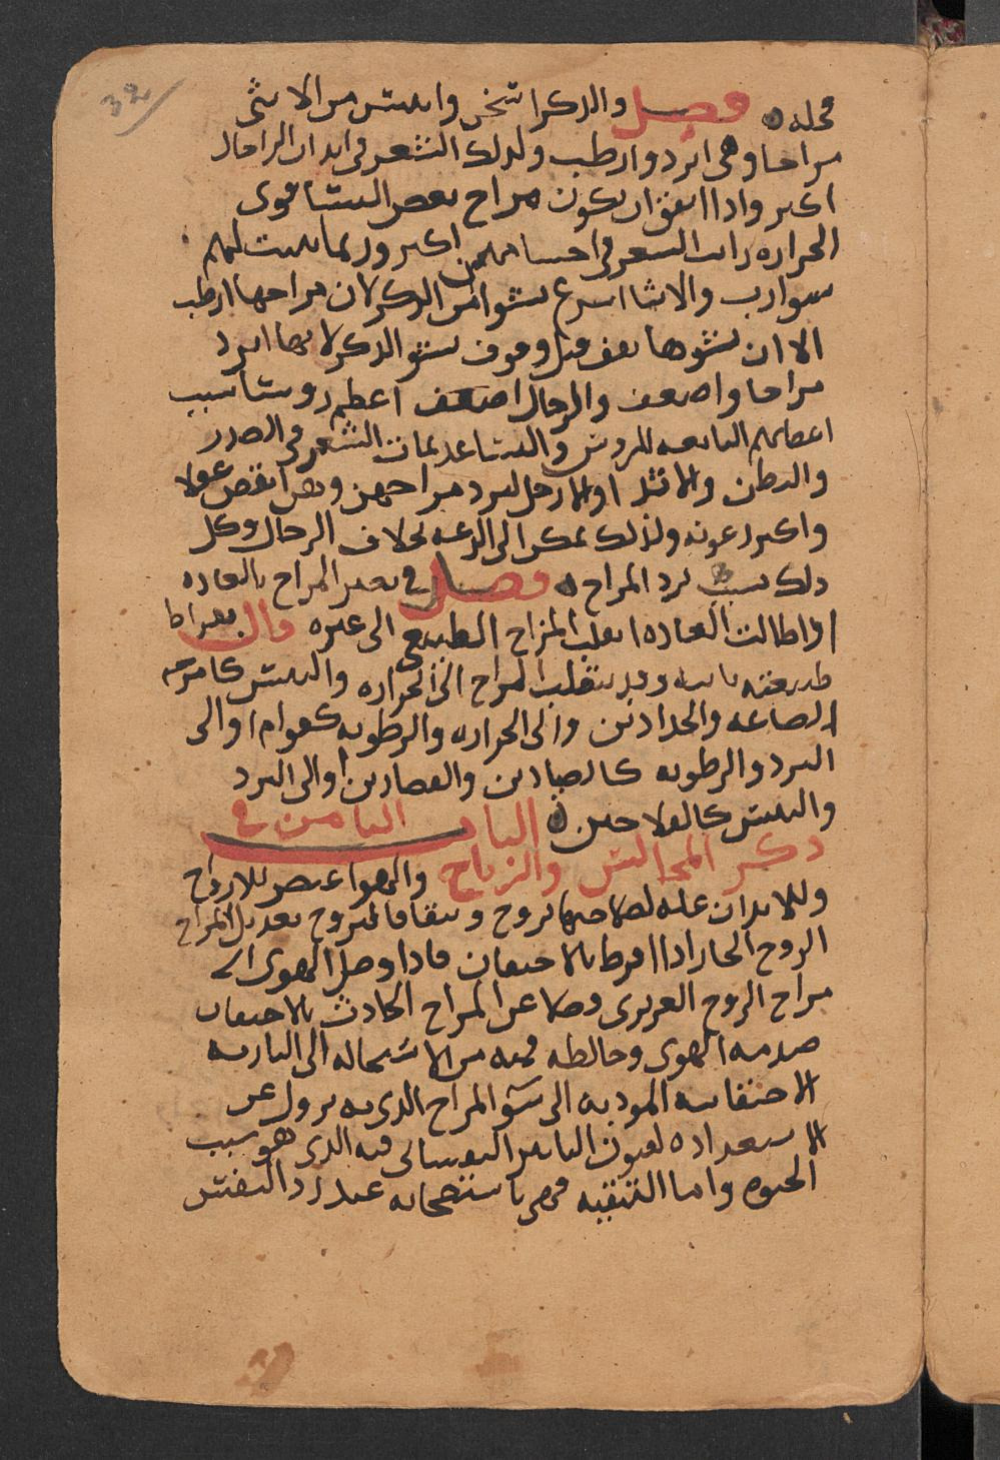 32
محله ه فصل والدكر اسخن وايبس من الانثى
مراجا وهي ابرد وارطب ولدلك الشعر في ابدان الرجال
اكبر وادا اتفق ان يكون مراج بعص النسا قوى
الحراره رايت السعر في اجسامهن اكبر وربما نبت لهم
سوارب والانثا اسرع نشوا من الدكر لان مراجها ارطب
الا ان نشوها يقف قبل وقوف نشو الدكر لانها ابرد
مراجا واصعف والرجال اعظم روسا سبب
اعصابهم النابعه للروس والنسا عديمات الشعر في الصدر
والبطن والارجل لبرد مراجهن وهن انقص عقولا
واكبر رعونه ولذلك الى الدعه بخلاف الرجال وكل
دلك بسبب برد المراج ه فصل في تغير المراج بالعاده
اذا طالت العاده انقلب المزاج الطبيعي الى غيره قال بقراط
طبيعته ثانيه وقد ينقلب المراج الى الحراره واليبس كامزجه
الصاغه والحدادين والى الحراره والرطوبه كقوام او الى
البرد والرطوبه كالصيادين والقصارين او الى البرد
واليبس كالفلاحين ه الباب الثامن في
دكر المجالس والرياح والهوا عنصر للارواح
وللابدان عله لصلاحها بروح وبنقا فالتروح تعديل المراج
الروح الحار ادا افرط بالاحتقان فادا وصل الهوى الى
مراج الروح الغريزى فصلا عن المراج الحادث بالاحتقان
صدمه الهوى وخالطه فمنعه من الاستحاله الى الناريه
الاحتقانيه الموديه الى سو المراج الدى به يرول عن
الاستعداد لقبول التاثير النفسانى فيه الدى هو سبب
الحيوه واما التنقيه فهي باستصحابه عند رد النفس